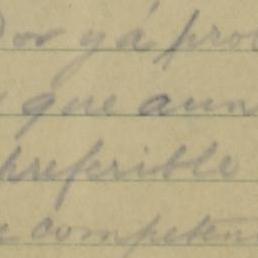 por yá pro
que aun
preferible
competen